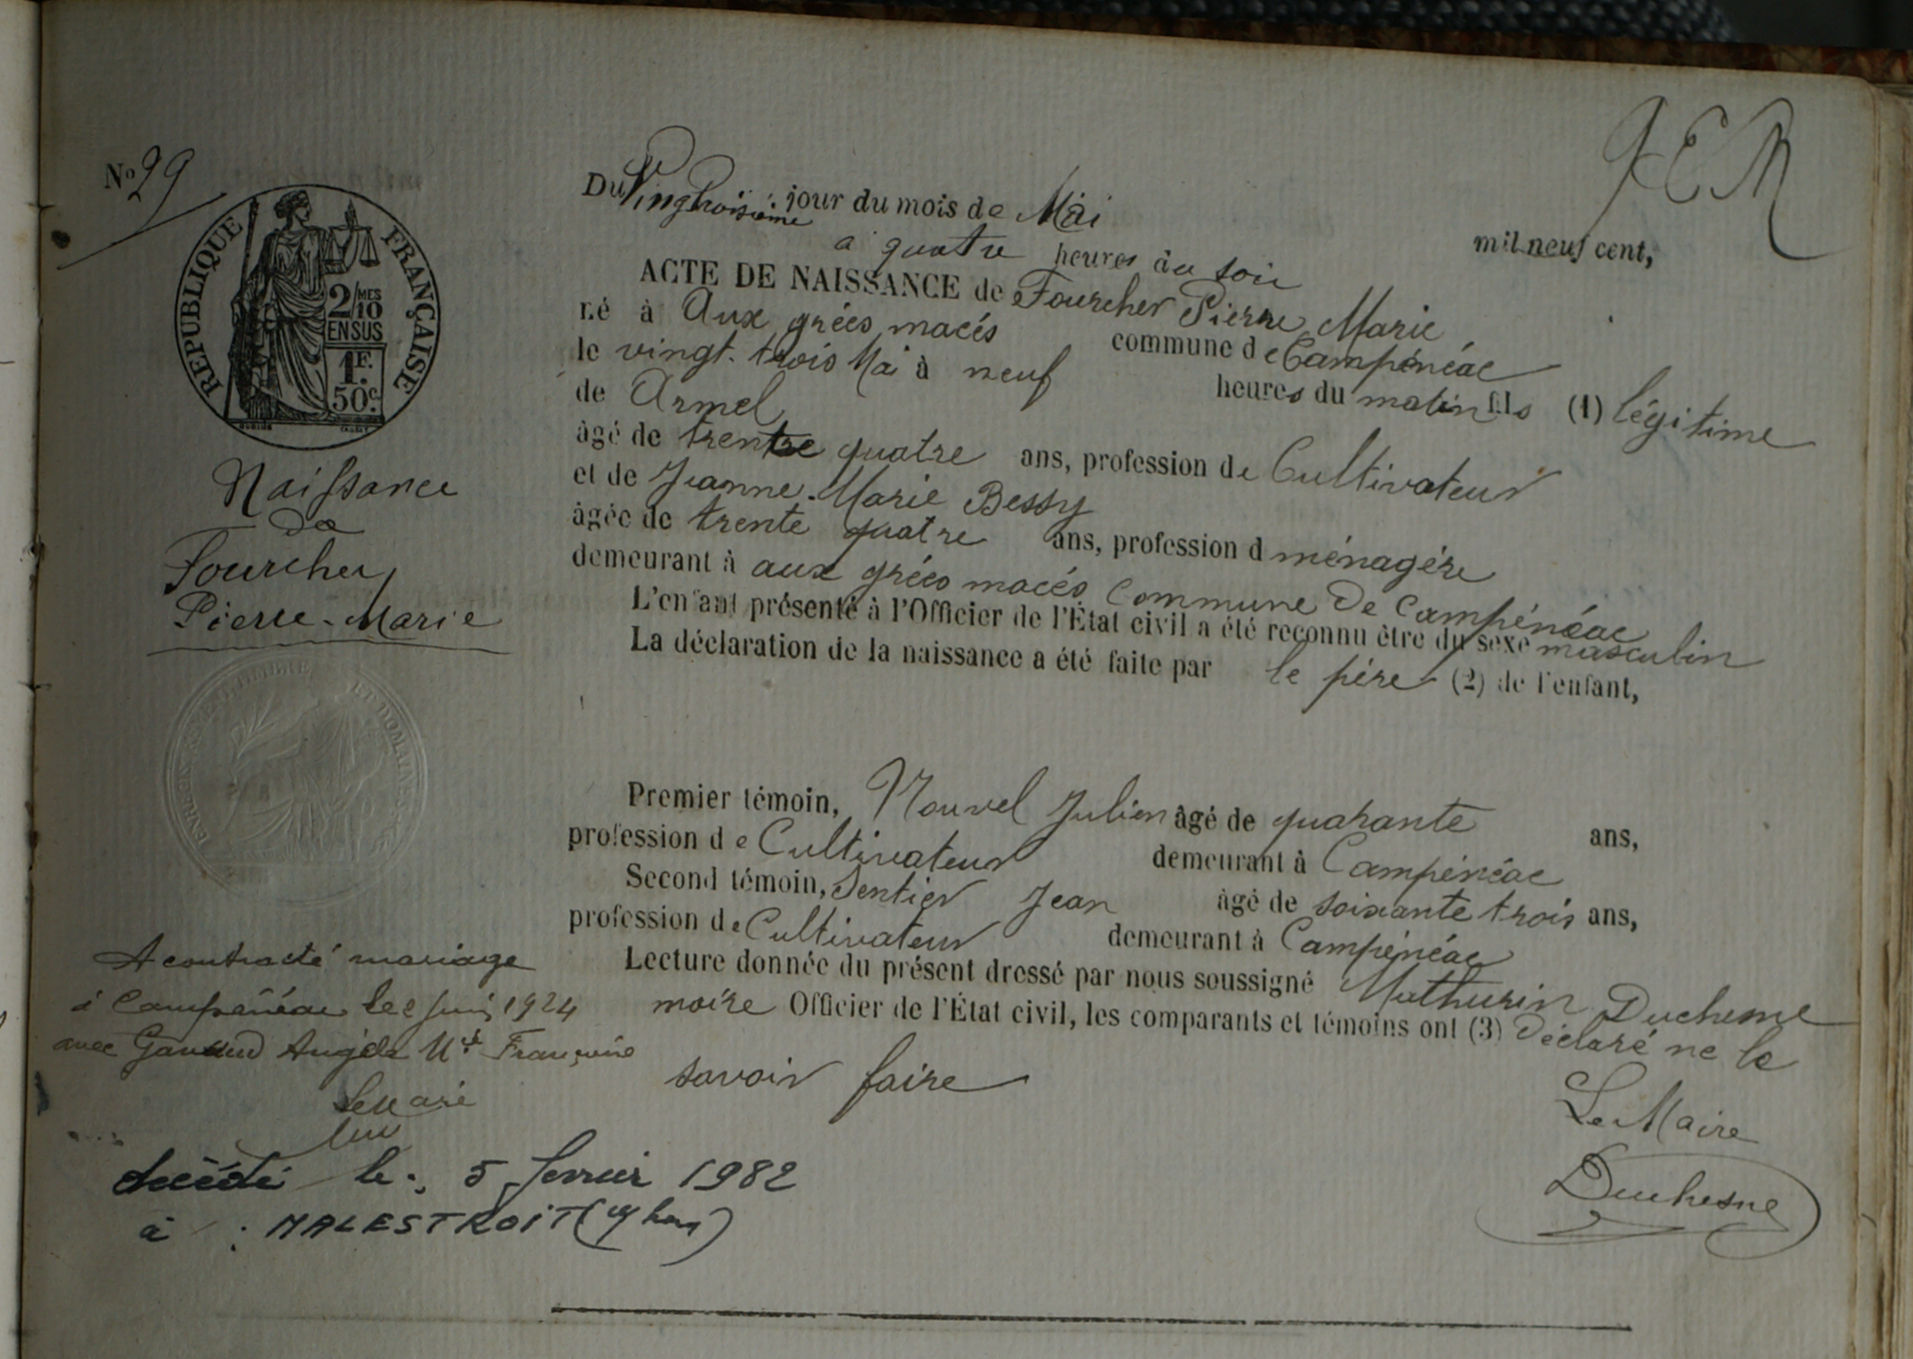 N° 29
RÉPUBLIQUE FRANÇAISE
2/MES
10
EN SUS
1F.
50c.
Naissance
de
Fourcher
Pierre-Marie
A contracté mariage
à Campénéac le 2 juin 1924
avec Angèle Mie Françoise
Le Maire
décédé le : 5 février 1982
à : MALESTROIT (
Du Vingtroisième jour du mois de Mai mil neuf cent,
a quatre heures du soir
ACTE DE NAISSANCE de Fourcher Pierre Marie
né à Aux grées macés commune de Campénéac
le vingt-trois Mai à neuf heures du matin fils (1) légitime
de Armel
âgé de trentre quatre ans, profession de Cultivateur
et de Jeanne-Marie Bessy
âgée de trente quatre ans, profession d ménagère
demeurant à aux grées macés commune de Campénéac
L'enfant présenté à l'Officier de l'État civil a été reconnu être du sexe masculin
La déclaration de la naissance a été faite par le père (2) de l'enfant,
Premier témoin, Nouvel Julien âgé de quarante ans,
profession de Cultivateur demeurant à Campénéac
Second témoin, Sentier Jean âgé de soixante trois ans,
profession de Cultivateur demeurant à Campénéac
Lecture donnée du présent dressé par nous soussigné Mathurin Duchesne
maire Officier de l'État civil, les comparants et témoins ont (3) déclaré ne le
savoir faire
Le Maire
Duchesne